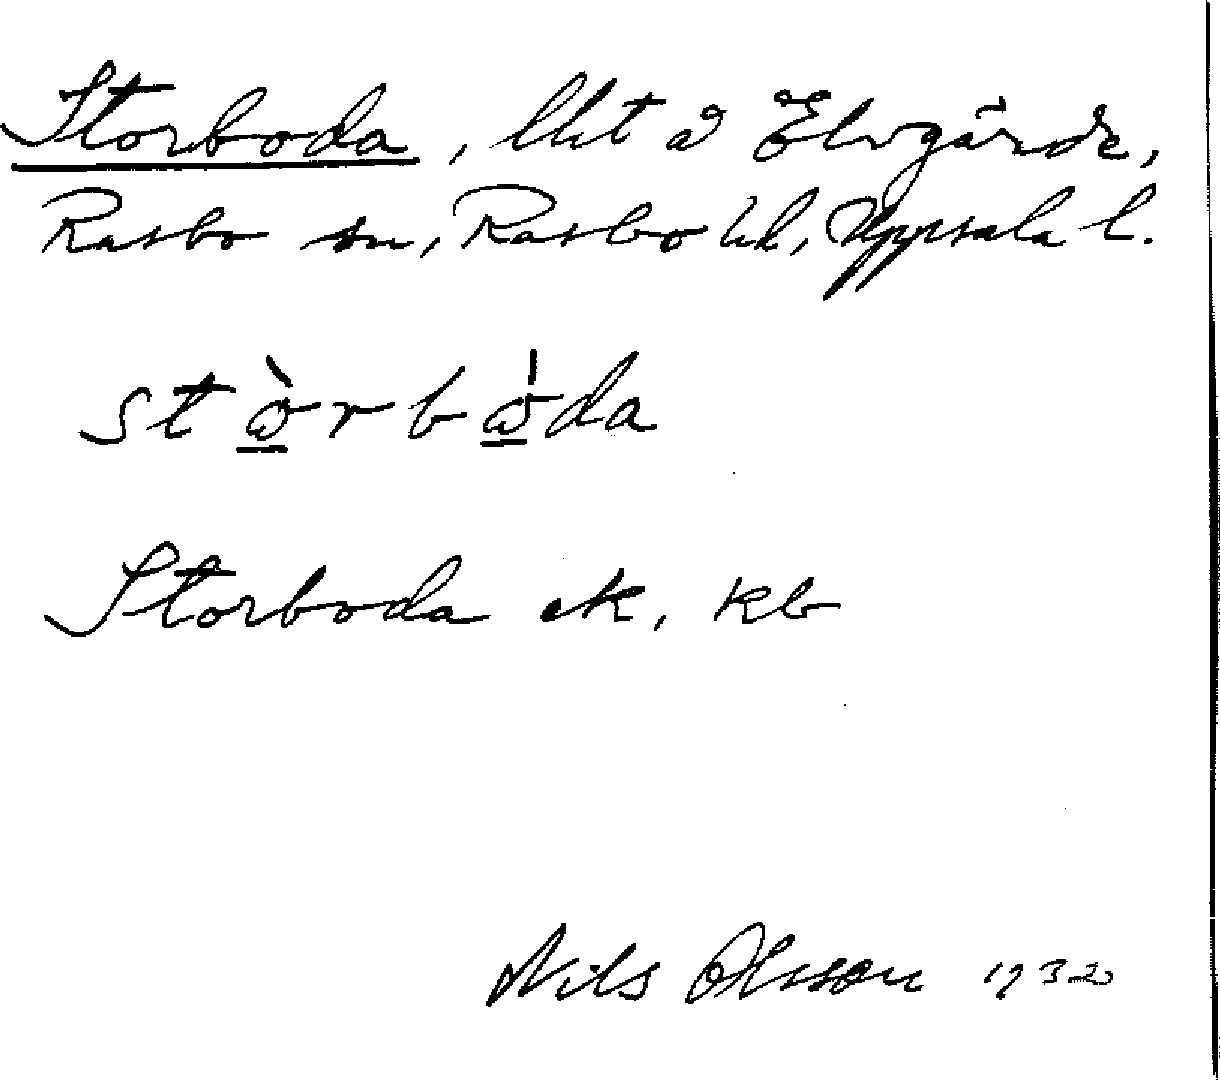 Storboda, lht å Elvgärde,
Rasbo sn, Rasbo hd, Uppsala l.
stὼ̲rbω̲̍da
Storboda ek, kb
Nils Olsson 1932